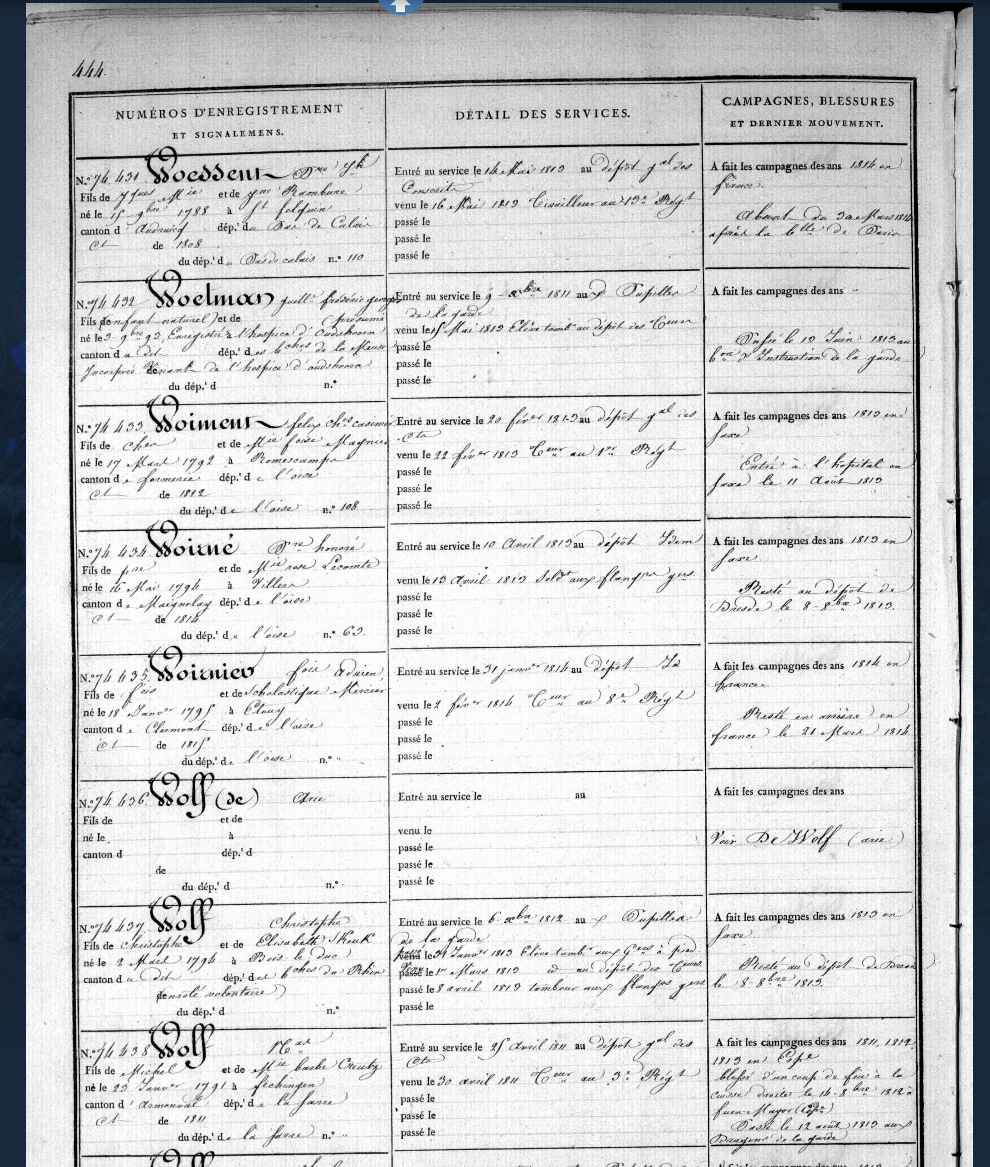 444.
NUMÉROS D'ENREGISTREMENT
ET SIGNALEMENS.
DÉTAIL DES SERVICES.
CAMPAGNES, BLESSURES
ET DERNIER MOUVEMENT.
N.º 74 431 Woessent
Fils de et de
né le 15 9bre 1788 à St folquin
canton d' Audruicq dép.t du Pas de Calais
Ct de 1808
du dép.t du Pas de calais n.º 110
Entré au service le 14 Mai 1813 au dépôt gal des
Conscrits
venu le 16 Mai 1813 Tirailleur au 13e Régt
passé le
passé le
passé le
A fait les campagnes des ans 1814 en
france.
Absent du 30 Mars 1814
après la blle de Paris
N.º 74 432 Woelman guill. frédéric george
Fils (enfant naturel) et de (présumé
né le 3 9bre 93, Enregistré à l'hospice d'Oudshoorn
canton du dit dép.t des bches de la Meuse
Incorporé Venant de l'hospice d'oudshoorn
du dép.t d n.º
Entré au service le 9 xbre 1811 aux Pupilles
de la garde
venu le 15 Mai 1813 Elève tambr au dépôt des Teurs
passé le
passé le
passé le
A fait les campagnes des ans "
Passé le 12 Juin 1813 au
bon d'Instruction de la garde
N.º 74 433. Woiment felix chs casimir
Fils de cher et de Mie foise Magnier
né le 17 Mars 1792 à Romescamps
canton de formerie dép.t de l'oise
Ct de 1812
du dép.t de l'oise n.º 108
Entré au service le 20 févr 1813 au dépôt gal des
Cts
venu le 22 févr 1813 Teur au 1er Régt
passé le
passé le
passé le
A fait les campagnes des ans 1813 en
saxe
Entré à l'hopital en
saxe le 11 Août 1813
N.º 74 434. Woirné Pre honoré
Fils de pre et de Mie rose Lecomte
né le 16 Mai 1794 à Villers
canton de Maignelay dép.t de l'oise
Ct de 1814
du dép.t de l'oise n.º 63.
Entré au service le 10 Avril 1813 au dépôt Idem
venu le 13 Avril 1813 Soldt aux flanqrs gers
passé le
passé le
passé le
A fait les campagnes des ans 1813 en
saxe.
Resté au dépôt de
Dresde le 8 8bre 1813.
N.º 74 435. Woirniev fois Adrien
Fils de fois et de Scholastique Mercier
né le 18 Janvr 1795 à
canton de Clermont dép.t de l'oise
Ct de 1815
du dép.t de l'oise n.º "
Entré au service le 31 janvr 1814 au dépôt Id
venu le 2 févr 1814 Teur au 8e Régt
passé le
passé le
passé le
A fait les campagnes des ans 1814 en
france.
Resté en arrière en
france le 21 Mars 1814
N.º 74 436 Wolf (de) Arie
Fils de et de
né le à
canton d dép.t d
de
du dép.t d n.º
Entré au service le au
venu le
passé le
passé le
passé le
A fait les campagnes des ans
Voir De Wolf (arie)
N.º 74 437. Wolf Christophe
Fils de Christophe et de Elisabeth
né le 2 Mars 1794 à Bois le duc
canton du dit dép.t des bches du Rhin
(enrolé volontaire)
du dép.t d n.º
Entré au service le 6 xbre 1812 aux Pupilles
de la garde
24 Janvr 1813 Elève tambr aux Gers à pied
1er Mars 1813 id au dépôt des Teurs.
passé le 8 avril 1813 tambour aux flanqrs gers
passé le
A fait les campagnes des ans 1813 en
saxe.
Resté au dépôt de Dresde
le 8 8bre 1813.
N.º 74 438 Wolf Nlas
Fils de Michel et de Mie barbe
né le 23 Janvr 1791 à fechingen
canton d' dép.t de la sarre
Ct de 1811
du dép.t de la sarre n.º "
Entré au service le 25 Avril 1811 au dépôt gal des
Cts
venu le 30 avril 1811 Teur au 3e Régt
passé le
passé le
passé le
A fait les campagnes des ans 1811, 1812
1813 en Espe
blessé d'un coup de feu à la
cuisse droite le 14 8bre 1812 à
fuen Mayor (Espe)
Passé le 12 août 1813 aux
Dragons de la garde